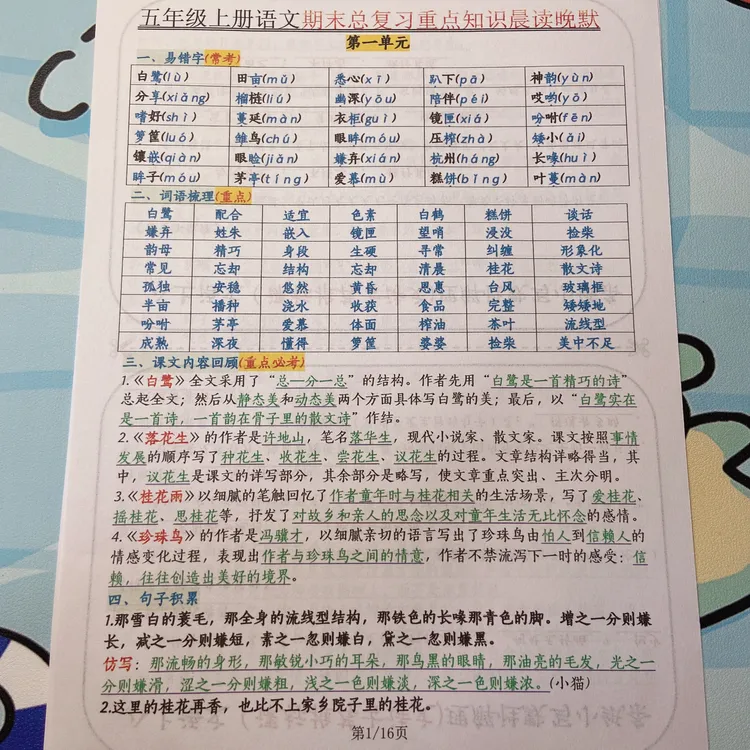 五年级上册语文期末总复习重点知识晨读晚默
第一单元
一、易错字(常考)
白鹭(lù) 田亩(mǔ) 悉心(xī) 趴下(pā) 神韵(yùn)
分享(xiǎng) 榴梿(liú) 幽深(yōu) 陪伴(péi) 哎哟(yō)
嗜好(shì) 蔓延(màn) 衣柜(guì) 镜匣(xiá) 吩咐(fēn)
箩筐(luó) 雏鸟(chú) 眼眸(móu) 压榨(zhà) 矮小(ǎi)
镶嵌(qiàn) 眼睑(jiǎn) 嫌弃(xián) 杭州(háng) 长喙(huì)
眸子(móu) 茅亭(tíng) 爱慕(mù) 糕饼(bǐng) 叶蔓(màn)
二、词语梳理(重点)
白鹭 配合 适宜 色素 白鹤 糕饼 谈话
嫌弃 姓朱 嵌入 镜匣 望哨 浸没 捡柴
韵母 精巧 身段 生硬 寻常 纠缠 形象化
常见 忘却 结构 忘却 清晨 桂花 散文诗
孤独 安稳 悠然 黄昏 恩惠 台风 玻璃框
半亩 播种 浇水 收获 食品 完整 矮矮地
吩咐 茅亭 爱慕 体面 榨油 茶叶 流线型
成熟 深夜 懂得 箩筐 婆婆 捡柴 美中不足
三、课文内容回顾(重点必考)
1.《白鹭》全文采用了“总—分—总”的结构。作者先用“白鹭是一首精巧的诗”
总起全文；然后从静态美和动态美两个方面具体写白鹭的美；最后，以“白鹭实在
是一首诗，一首韵在骨子里的散文诗”作结。
2.《落花生》的作者是许地山，笔名落华生，现代小说家、散文家。课文按照事情
发展的顺序写了种花生、收花生、尝花生、议花生的过程。文章结构详略得当，其
中，议花生是课文的详写部分，其余部分是略写，使文章重点突出、主次分明。
3.《桂花雨》以细腻的笔触回忆了作者童年时与桂花相关的生活场景，写了爱桂花、
摇桂花、思桂花等，抒发了对故乡和亲人的思念以及对童年生活无比怀念的感情。
4.《珍珠鸟》的作者是冯骥才，以细腻亲切的语言写出了珍珠鸟由怕人到信赖人的
情感变化过程，表现出作者与珍珠鸟之间的情意，作者不禁流泻下一时的感受：信
赖，往往创造出美好的境界。
四、句子积累
1.那雪白的蓑毛，那全身的流线型结构，那铁色的长喙那青色的脚。增之一分则嫌
长，减之一分则嫌短，素之一忽则嫌白，黛之一忽则嫌黑。
仿写：那流畅的身形，那敏锐小巧的耳朵，那乌黑的眼睛，那油亮的毛发，光之一
分则嫌滑，涩之一分则嫌粗，浅之一色则嫌淡，深之一色则嫌浓。(小猫)
2.这里的桂花再香，也比不上家乡院子里的桂花。
第1/16页